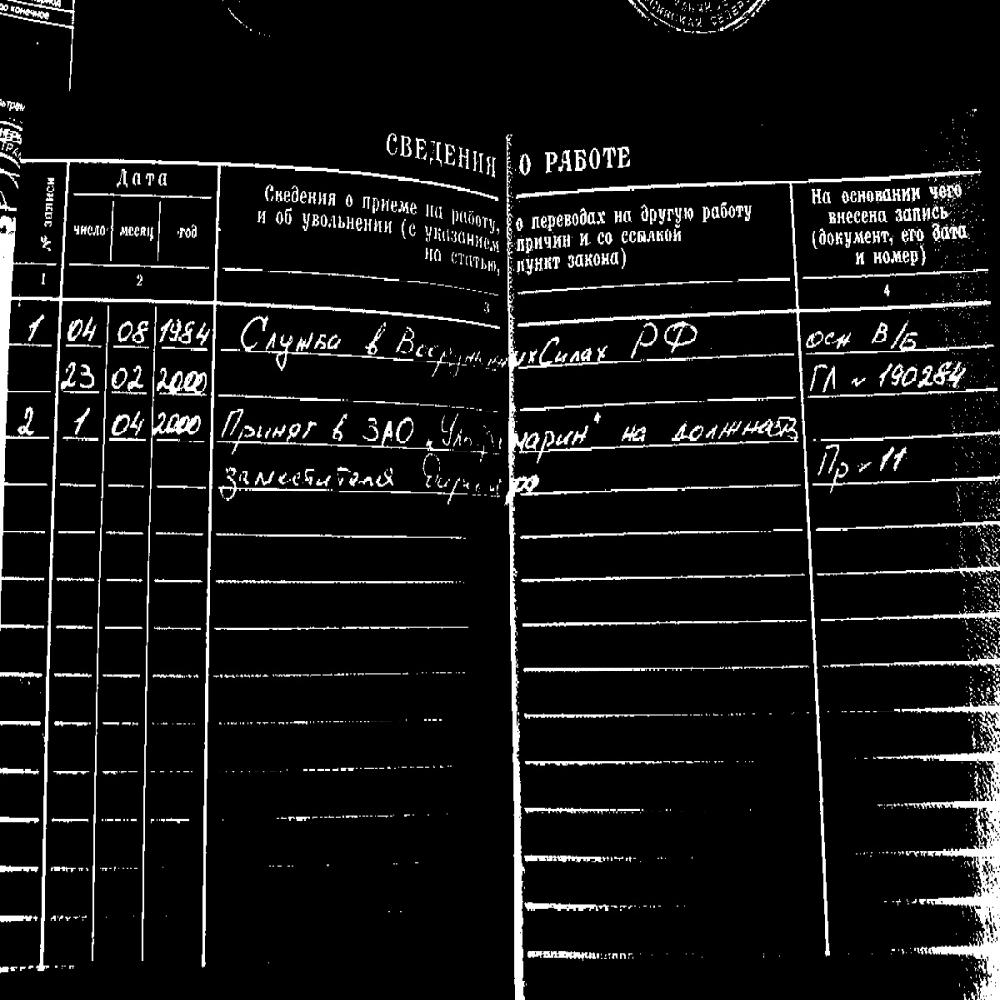 ро конечное
СВЕДЕНИЯ О РАБОТЕ
№ записи
Дата
число месяц год
Сведения о приеме на работу, о переводах на другую работу
и об увольнении (с указанием причин и со ссылкой
на статью, пункт закона)
На основании чего
внесена запись
(документ, его дата
и номер)
1 2 3 4
1 04 08 1984 Служба в Вооруженных Силах РФ осн В/Б
23 02 2000 ГЛ № 190284
2 1 04 2000 Принят в ЗАО на должность
заместителя Пр № 11